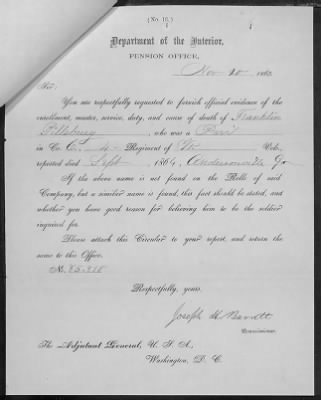 (No. 16.)
Department of the Interior,
PENSION OFFICE,
Nov 186
Sir:
You are respectfully requested to furnish official evidence of the
enrollment, muster, service, duty, and cause of death of Franklin
Pillsbury, who was a Priv
in Co. 4 Regiment of Vols.,
reported died Sept 1864, Andersonville Ga
If the above name is not found on the Rolls of said
Company, but a similar name is found, this fact should be stated, and
whether you have good reason for believing him to be the soldier
inquired for.
Please attach this Circular to your report, and return the
same to this Office.
No.
Respectfully, yours,
Joseph H Barrett
Commissioner.
The Adjutant General, U. S. A.,
Washington, D. C.